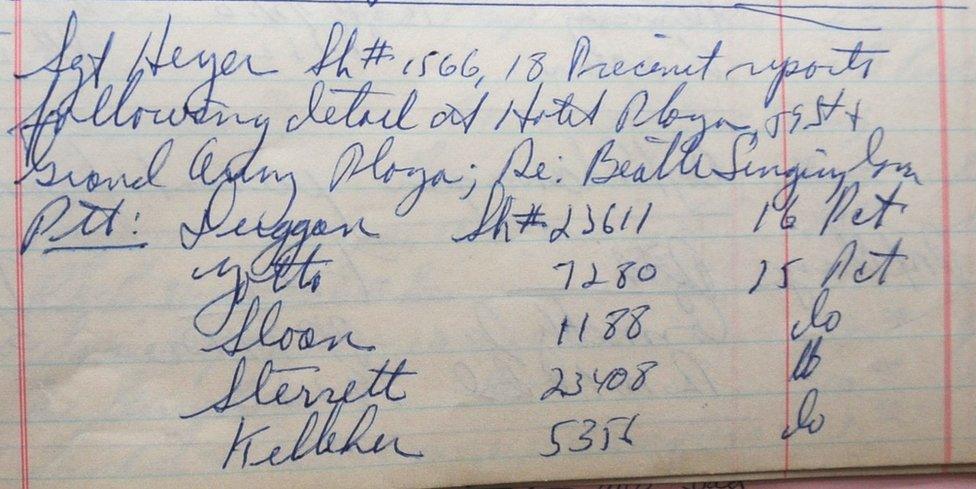 Sgt Heyer Sh# 1566, 18 Precinct reports
following detail at Hotel Plaza, 59 St +
Grand Army Plaza; Re: Beatle Singing
Ptl: Duggan Sh# 23611 16 Pct
7280 25 Pct
Sloan 1188 do
Sterrett 23408
Kelleher 5356 do